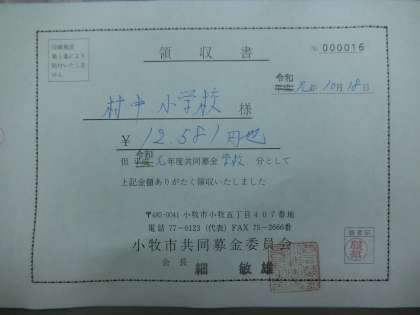 領収書
№ 000016
印紙税法
第5条により
貼付いたしま
せん
令和
平成 元年 10月 18日
村中小学校 様
¥ 12.581円也
令和
但 平成 元年度共同募金 学校 分として
上記金額ありがたく領収いたしました
〒485-0041 小牧市小牧五丁目407番地
電話 77-0123 (代表) FAX 75-2666番
小牧市共同募金委員会
会長 細 敏雄